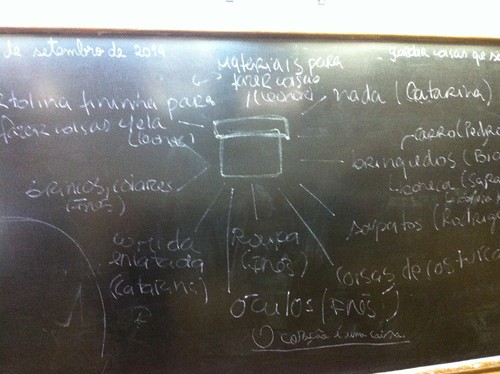 de setembro de 2014
Materiais para
fazer coisas
(Leonor)
guardar coisas que se
nada (Catarina)
cartolina fininha para
fazer coisas
(Leonor)
carro
brinquedos
boneca
brincos, colares
(Inês)
sapatos (Rodrigo
comida
enlatada
(Catarina)
Roupa
(Inês)
coisas de costura
óculos (Inês)
O coração é uma caixa